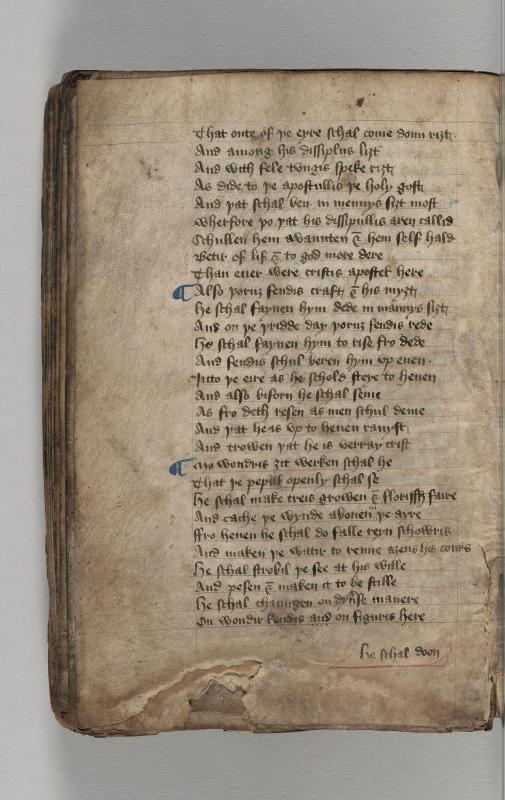 That oute of þe eyre schal come doun riȝt
And among his dissiplus liȝt
And with fele tungis speke riȝt
As dide to þe apostullis þe holy gost
And þat schal ben in mennys siȝt most
Wherfore þo þat his dissipullis aren callid
Schullen hem avaunten & hem self hald
Betir of lif & to god more dere
Than euer were cristis apostel here
¶ Also þoruȝ fendis craft & his myȝt
He schal faynen hym dede in mannys siȝt
And on þe þridde day þoruȝ fendis rede
He schal faynen hym to rise fro dede
And fendis schul beren hym vp euen
Into þe eire as he schold steye to heuen
And also biforn he schal seme
As fro deth resen as men schul deme
And þat he is vp to heuen rauyst
And trowen þat he is verray crist
¶ Mo wondris ȝit werken schal he
That þe pepul openly schal se
He schal make treis growen & florissh faire
And cache þe wynde abouen þe ayre
Ffro heuen he schal do falle reyn schowris
And maken þe watir to renne aȝens his cours
He schal strobil þe see at his wille
And pesen & maken it to be stille
He schal chaungen on dyuerse manere
On wondir kendis and on figuris here
he schal doon